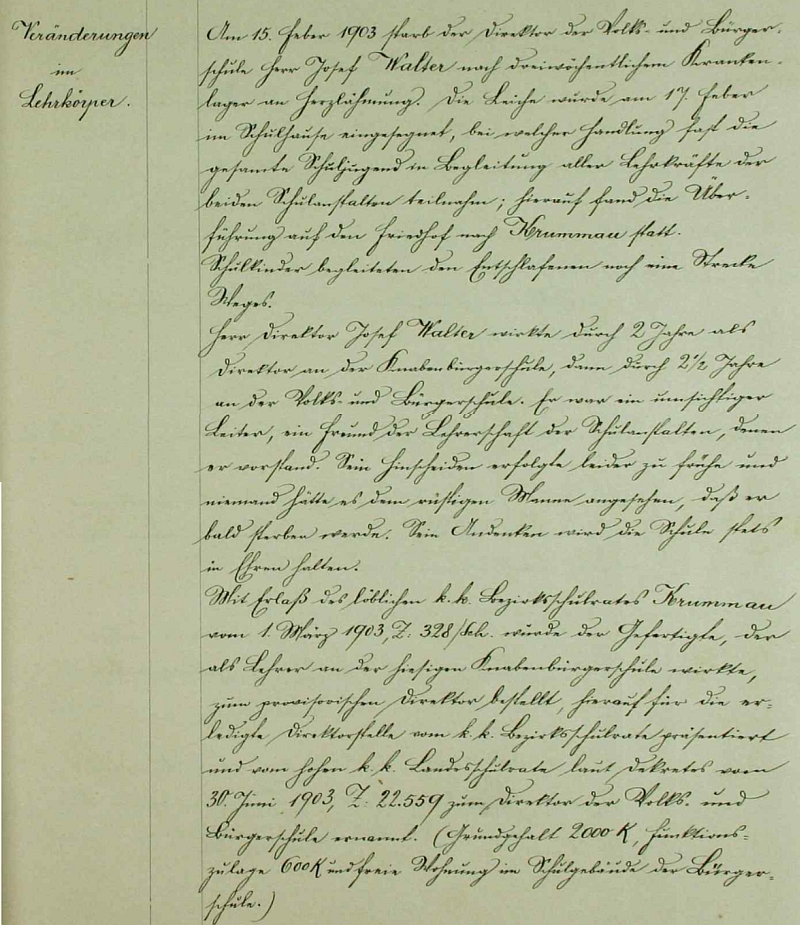 Veränderungen
im
Lehrkörper.
Am 15. Feber 1903 starb der Direktor der Volks- und Bürger-
schule Herr Josef Walter nach dreiwöchentlichem Kranken-
lager an Herzlähmung. Die Leiche wurde am 17. Feber
im Schulhause eingesegnet, bei welcher Handlung fast die
gesamte Schuljugend in Begleitung aller Lehrkräfte der
beiden Schulanstalten teilnahm; hierauf fand die Über-
führung auf den Friedhof nach Krummau statt.
Schulkinder begleiteten den Entschlafenen noch eine Strecke
Weges.
Herr Direktor Josef Walter wirkte durch 2 Jahre als
Direktor an der Knabenbürgerschule, dann durch 2½ Jahre
an der Volks- und Bürgerschule. Er war ein umsichtiger
Leiter, ein Freund der Lehrerschaft der Schulanstalten, denen
er vorstand. Sein Hinscheiden erfolgte leider zu frühe und
niemand hätte es dem rüstigen Manne angesehen, daß er
bald sterben werde. Sein Andenken wird die Schule stets
in Ehren halten.
Mit Erlaß des löblichen k. k. Bezirksschulrates Krummau
vom 1. März 1903, Z: 328/Sch. wurde der Gefertigte, der
als Lehrer an der hiesigen Knabenbürgerschule wirkte,
zum provisorischen Direktor bestellt, hierauf für die er-
ledigte Direktorstelle vom k. k. Bezirksschulrate präsentiert
und vom hohen k. k. Landesschulrate laut Dekretes vom
30. Juni 1903, Z: 22.559 zum Direktor der Volks- und
Bürgerschule ernannt. (Grundgehalt 2000 K, Funktions-
zulage 600 K und freie Wohnung im Schulgebäude der Bürger-
schule.)